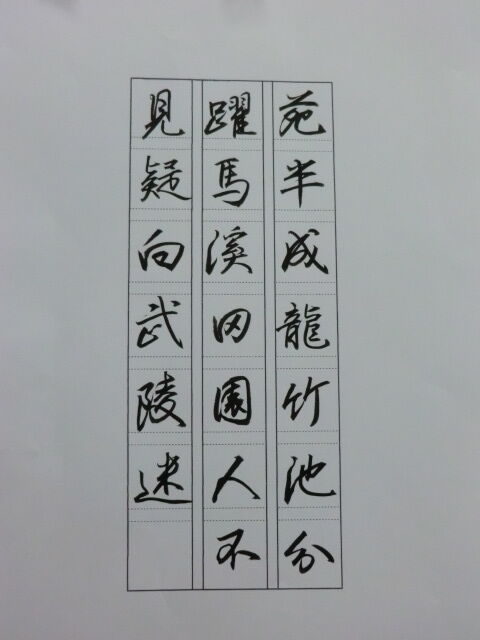 苑半成龍竹池分
躍馬溪田園人不
見疑向武陵迷